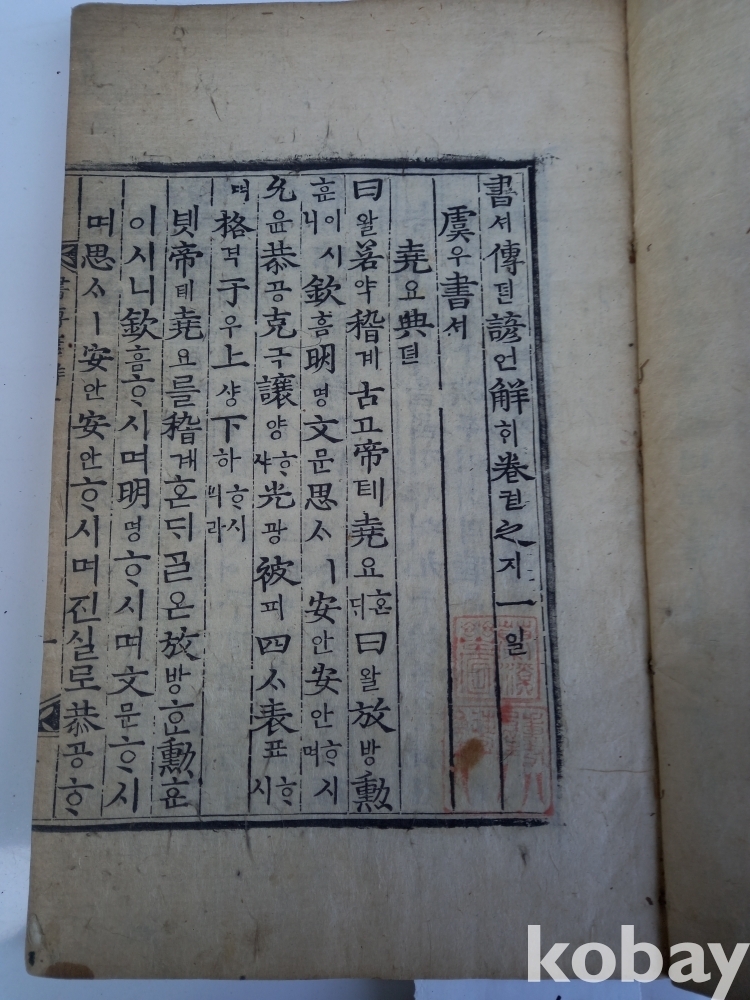 書셔傳뎐諺언解ᄒᆡ卷권之지一일
虞우書셔
堯요典뎐
曰왈若약稽계古고帝뎨堯요혼ᄃᆡ曰왈放방勳
훈이시니欽흠明명文문思ᄉᆞㅣ安안安안ᄒᆞ시며
允윤恭공克극讓양ᄒᆞ샤光광被피四ᄉᆞ表표ᄒᆞ시
며格격于우上샹下하ᄒᆞ시니라
녯帝뎨堯요를稽계혼ᄃᆡᄀᆞᆯ온放방ᄒᆞᆫ勳훈
이시니欽흠ᄒᆞ시며明명ᄒᆞ시며文문ᄒᆞ시
며思ᄉᆞㅣ安안安안ᄒᆞ시며진실로恭공ᄒᆞ
kobay